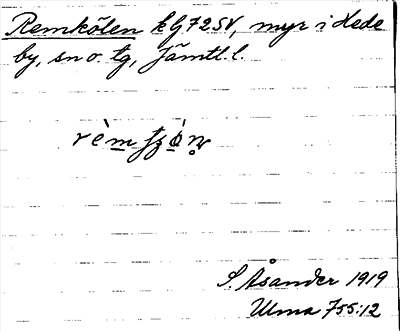 Remkölen k G72SV, myr i Hede
by, sn o. tg, Jämtl. l.
S. Åsander 1919
Ulma 755:12